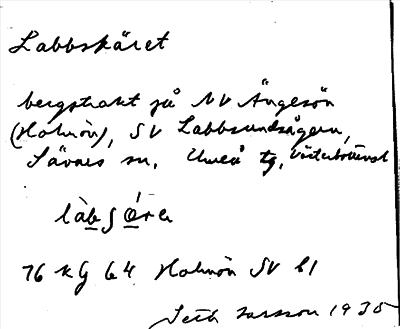 Labbskäret
bergstrakt på NV Ängesön
(Holmön), SV Labbsundsågern,
Sävars sn, Umeå tg, Västerbottens l
làb ʃǿ.rə
76 kg 64 Holmön SV bl
Seth Larsson 1935